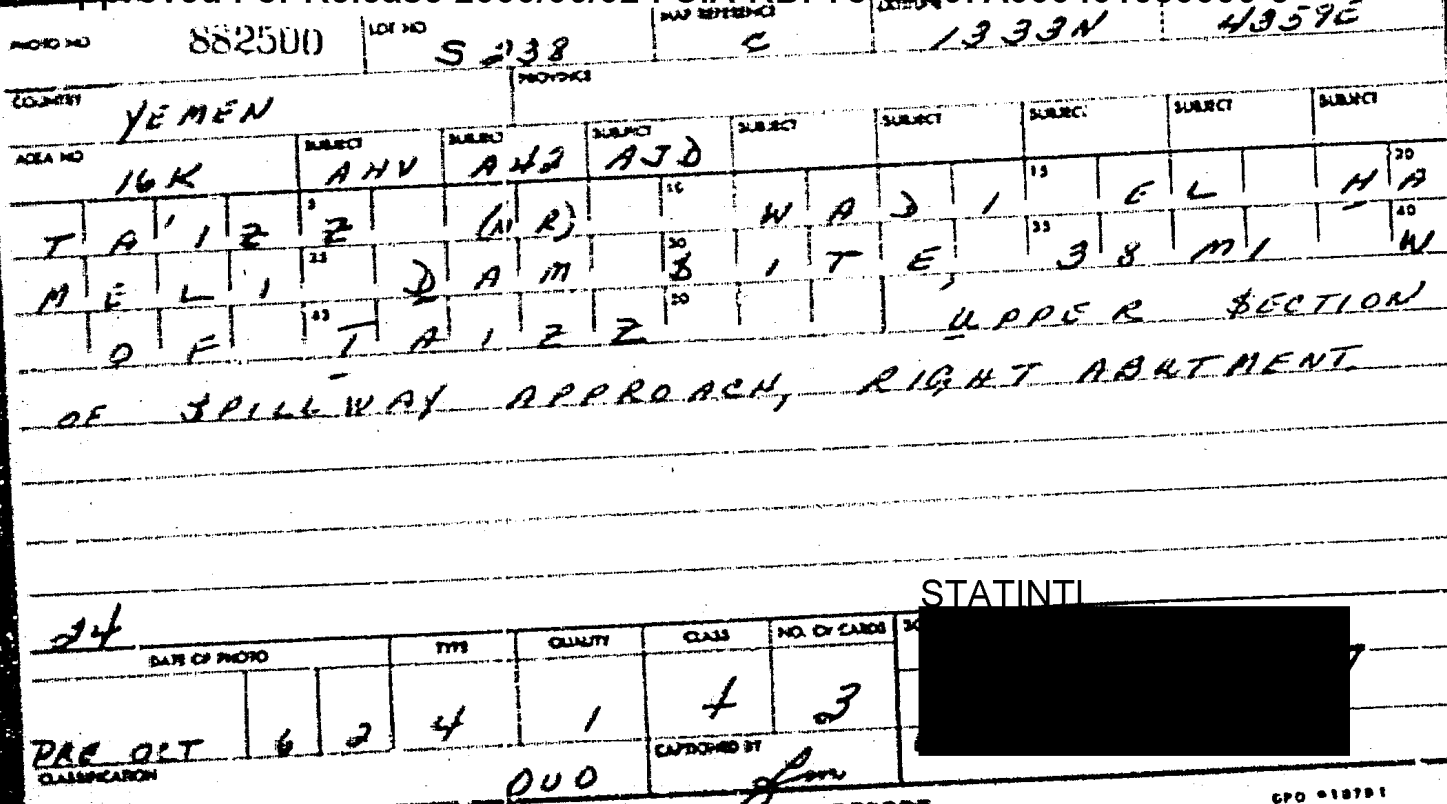 PHOTO NO 882500 LOT NO S 238 MAP REFERENCE C 1333N 4359E
COUNTRY YEMEN PROVINCE
AREA NO 16K SUBJECT AHV SUBJECT A42 SUBJECT AJD SUBJECT SUBJECT SUBJECT SUBJECT SUBJECT
TA'IZZ (NR) WADI EL HA
MELI DAM SITE, 38 MI W
OF TAIZZ UPPER SECTION
OF SPILLWAY APPROACH, RIGHT ABUTMENT.
STATINTL
24
DATE OF PHOTO TYPE QUALITY CLASS NO. OF CARDS
PRE OCT 6 2 4 1 3
CLASSIFICATION OUO CAPTIONED BY
GPO 918791